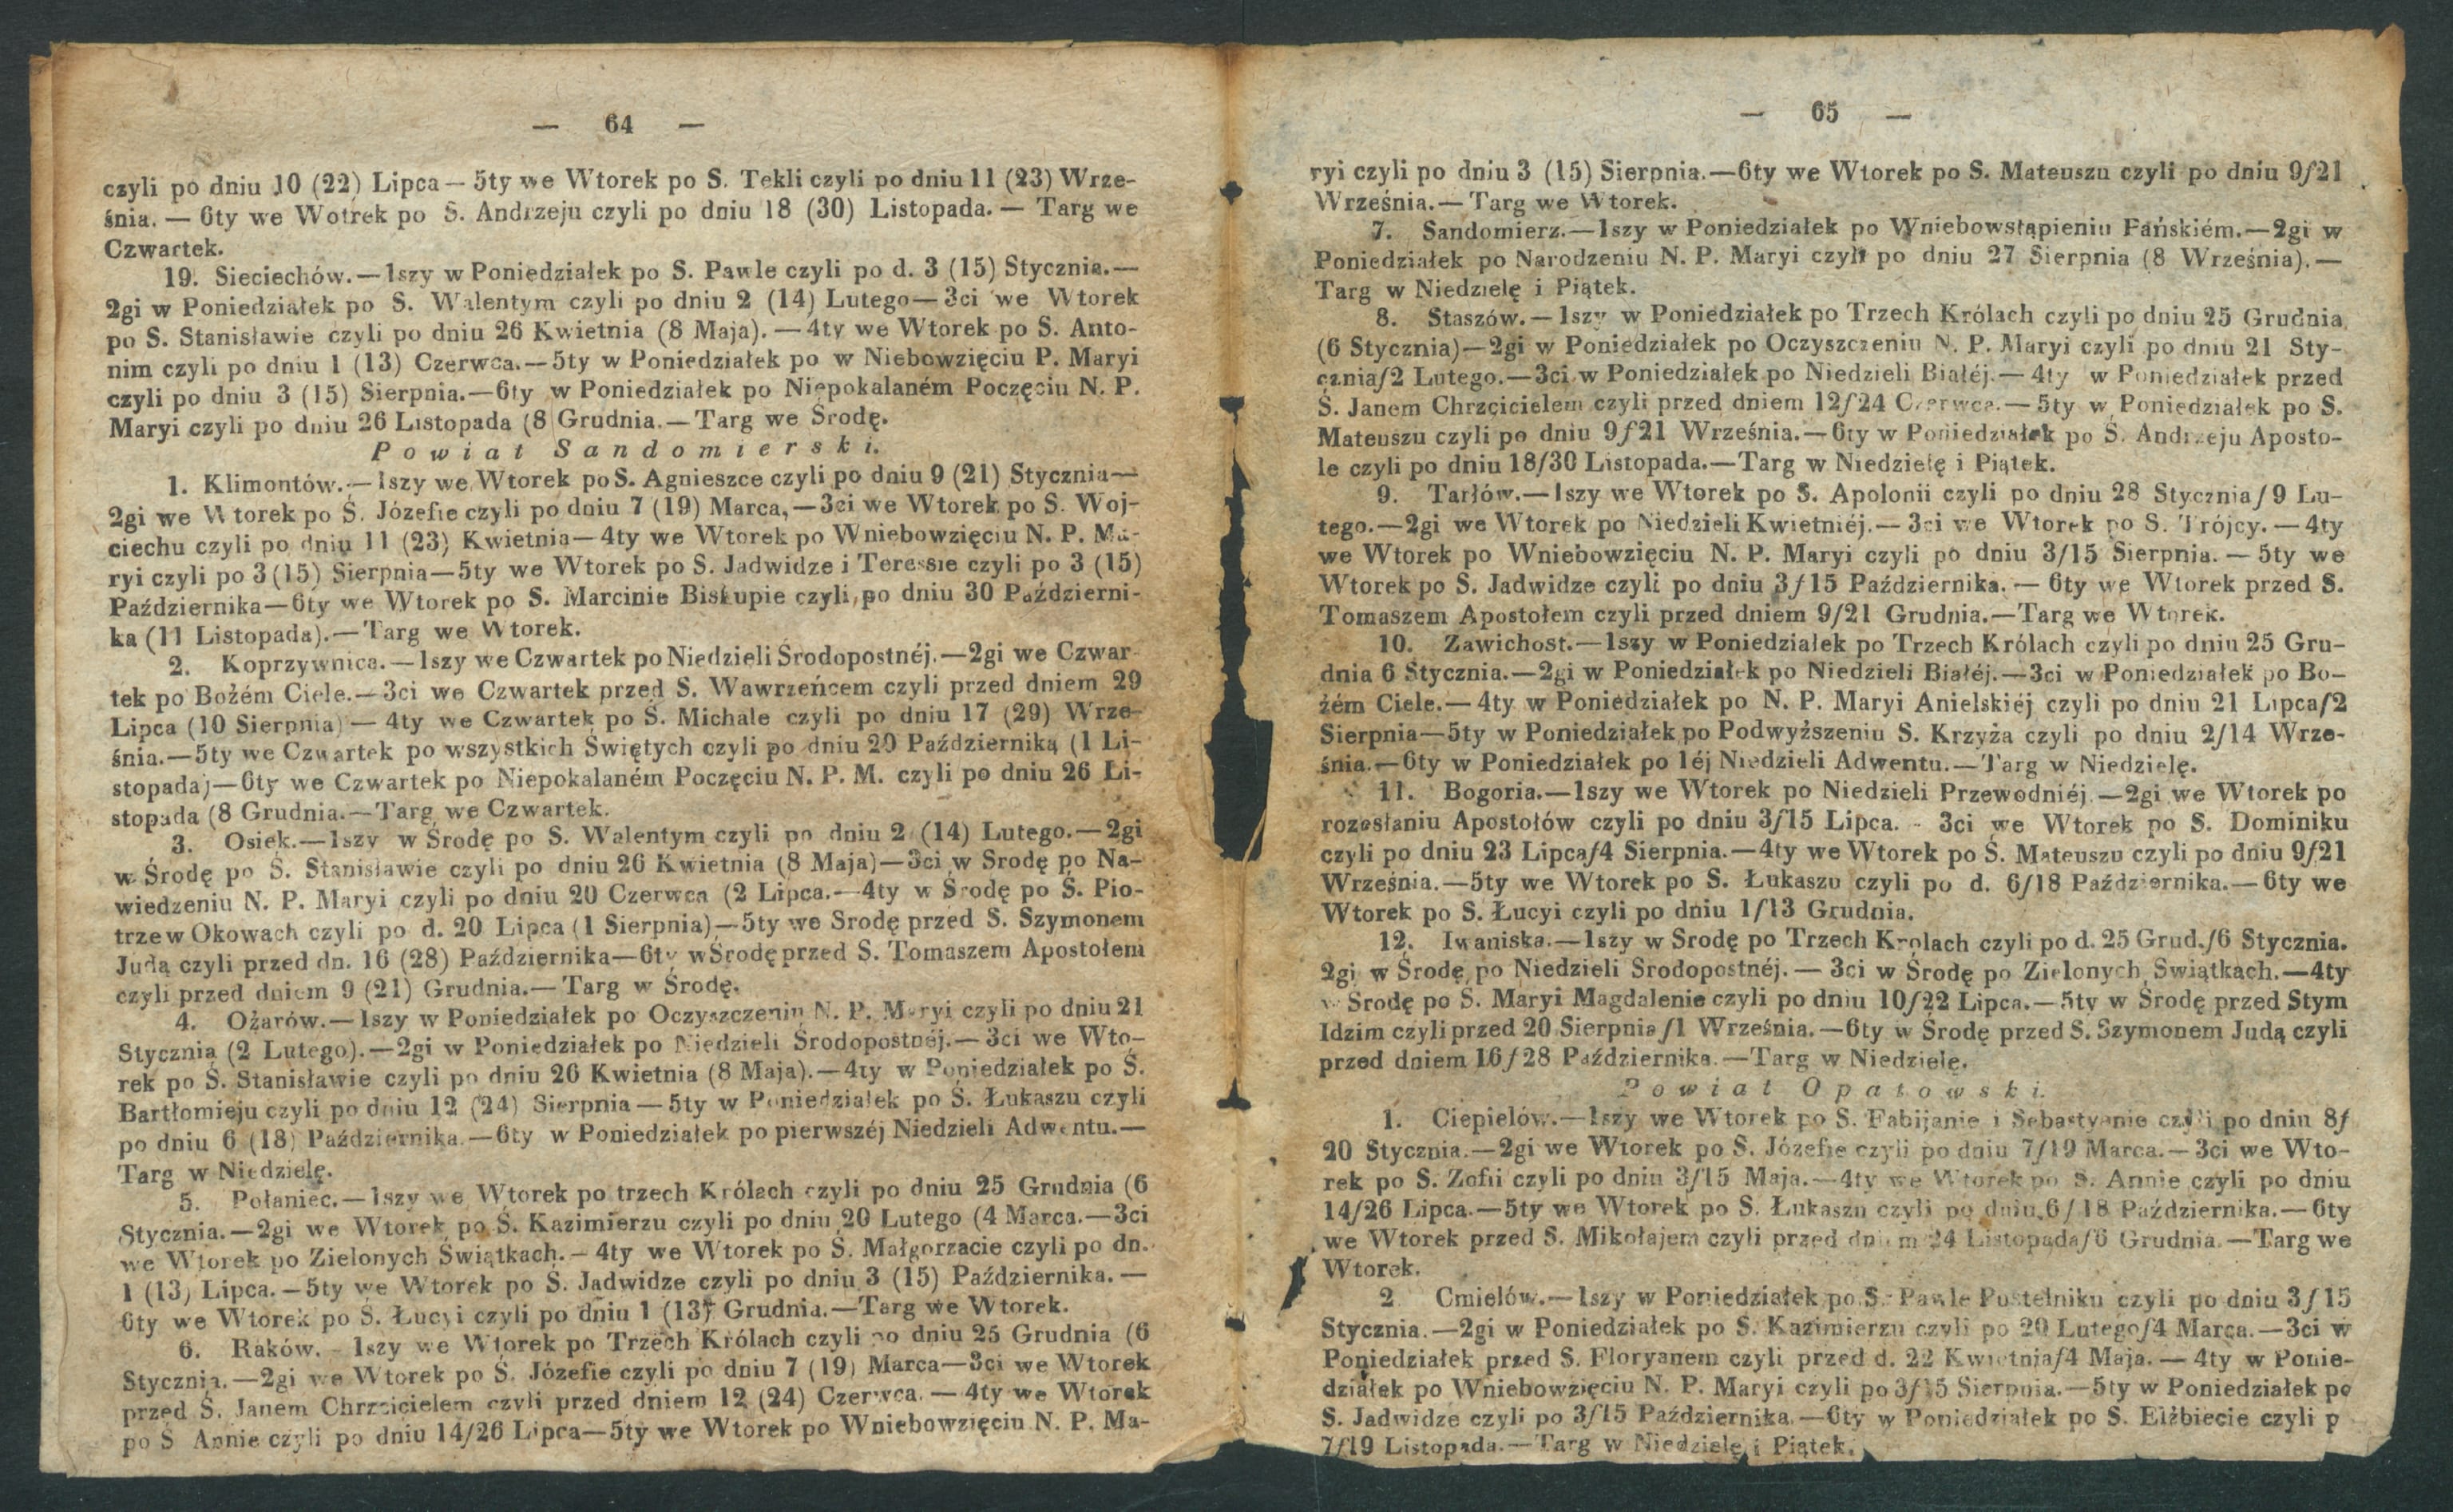 — 64 —
czyli po dniu 10 (22) Lipca — 5ty we Wtorek po S. Tekli czyli po dniu 11 (23) Wrze-
śnia. — 6ty we Wotrek po S. Andrzeju czyli po dniu 18 (30) Listopada. — Targ we
Czwartek.
19. Sieciechów. — 1szy w Poniedziałek po S. Pawle czyli po d. 3 (15) Stycznia. —
2gi w Poniedziałek po S. Walentym czyli po dniu 2 (14) Lutego — 3ci we Wtorek
po S. Stanisławie czyli po dniu 26 Kwietnia (8 Maja). — 4ty we Wtorek po S. Anto-
nim czyli po dniu 1 (13) Czerwca. — 5ty w Poniedziałek po w Niebowzięciu P. Maryi
czyli po dniu 3 (15) Sierpnia. — 6ty w Poniedziałek po Niepokalaném Poczęciu N. P.
Maryi czyli po dniu 26 Listopada (8 Grudnia. — Targ we Środę.
Powiat Sandomierski.
1. Klimontów. — 1szy we Wtorek po S. Agnieszce czyli po dniu 9 (21) Stycznia —
2gi we Wtorek po Ś. Józefie czyli po dniu 7 (19) Marca, — 3ci we Wtorek po S. Woj-
ciechu czyli po dniu 11 (23) Kwietnia — 4ty we Wtorek po Wniebowzięciu N. P. Ma-
ryi czyli po 3 (15) Sierpnia — 5ty we Wtorek po S. Jadwidze i Teressie czyli po 3 (15)
Października — 6ty we Wtorek po S. Marcinie Biskupie czyli po dniu 30 Październi-
ka (11 Listopada). — Targ we Wtorek.
2. Koprzywnica. — 1szy we Czwartek po Niedzieli Środopostnéj. — 2gi we Czwar-
tek po Bożém Ciele. — 3ci we Czwartek przed S. Wawrzeńcem czyli przed dniem 29
Lipca (10 Sierpnia) — 4ty we Czwartek po Ś. Michale czyli po dniu 17 (29) Wrze-
śnia. — 5ty we Czwartek po wszystkich Świętych czyli po dniu 20 Października (1 Li-
stopada) — 6ty we Czwartek po Niepokalaném Poczęciu N. P. M. czyli po dniu 26 Li-
stopada (8 Grudnia. — Targ we Czwartek.
3. Osiek. — 1szy w Środę po S. Walentym czyli po dniu 2 (14) Lutego. — 2gi
w Środę po Ś. Stanisławie czyli po dniu 26 Kwietnia (8 Maja) — 3ci w Srodę po Na-
wiedzeniu N. P. Maryi czyli po dniu 20 Czerwca (2 Lipca. — 4ty w Środę po Ś. Pio-
trze w Okowach czyli po d. 20 Lipca (1 Sierpnia) — 5ty we Srodę przed S. Szymonem
Judą czyli przed dn. 16 (28) Października — 6ty w Środę przed S. Tomaszem Apostołem
czyli przed dniem 9 (21) Grudnia. — Targ w Środę.
4. Ożarów. — 1szy w Poniedziałek po Oczyszczeniu N. P. Maryi czyli po dniu 21
Stycznia (2 Lutego). — 2gi w Poniedziałek po Niedzieli Srodopostnéj. — 3ci we Wto-
rek po Ś. Stanisławie czyli po dniu 26 Kwietnia (8 Maja). — 4ty w Poniedziałek po Ś.
Bartłomieju czyli po dniu 12 (24) Sierpnia — 5ty w Poniedziałek po Ś. Łukaszu czyli
po dniu 6 (18) Października. — 6ty w Poniedziałek po pierwszéj Niedzieli Adwentu. —
Targ w Niedzielę.
5. Połaniec. — 1szy we Wtorek po trzech Królach czyli po dniu 25 Grudnia (6
Stycznia. — 2gi we Wtorek po Ś. Kazimierzu czyli po dniu 20 Lutego (4 Marca. — 3ci
we Wtorek po Zielonych Świątkach. — 4ty we Wtorek po Ś. Małgorzacie czyli po dn.
1 (13) Lipca. — 5ty we Wtorek po S. Jadwidze czyli po dniu 3 (15) Października. —
6ty we Wtorek po S. Łucyi czyli po dniu 1 (13) Grudnia. — Targ we Wtorek.
6. Raków. - 1szy we Wtorek po Trzech Królach czyli po dniu 25 Grudnia (6
Stycznia. — 2gi we Wtorek po S. Józefie czyli po dniu 7 (19) Marca — 3ci we Wtorek
przed S. Janem Chrzcicielem czyli przed dniem 12 (24) Czerwca. — 4ty we Wtorek
po S Annie czyli po dniu 14/26 Lipca — 5ty we Wtorek po Wniebowzięciu N. P. Ma-
— 65 —
ryi czyli po dniu 3 (15) Sierpnia. — 6ty we Wtorek po S. Mateuszu czyli po dniu 9/21
Września. — Targ we Wtorek.
7. Sandomierz. — 1szy w Poniedziałek po Wniebowstąpieniu Pańskiém. — 2gi w
Poniedziałek po Narodzeniu N. P. Maryi czyli po dniu 27 Sierpnia (8 Września). —
Targ w Niedzielę i Piątek.
8. Staszów. — 1szy w Poniedziałek po Trzech Królach czyli po dniu 25 Grudnia
(6 Stycznia) — 2gi w Poniedziałek po Oczyszczeniu N. P. Maryi czyli po dniu 21 Sty-
cznia/2 Lutego. — 3ci w Poniedziałek po Niedzieli Białéj. — 4ty w Poniedziałek przed
Ś. Janem Chrzcicielem czyli przed dniem 12/24 Czerwca. — 5ty w Poniedziałek po S.
Mateuszu czyli po dniu 9/21 Września. — 6ty w Poniedziałek po S. Andrzeju Aposto-
le czyli po dniu 18/30 Listopada. — Targ w Niedzielę i Piątek.
9. Tarłów. — 1szy we Wtorek po S. Apolonii czyli po dniu 28 Stycznia/9 Lu-
tego. — 2gi we Wtorek po Niedzieli Kwietniéj. — 3ci we Wtorek po S. Trójcy. — 4ty
we Wtorek po Wniebowzięciu N. P. Maryi czyli po dniu 3/15 Sierpnia. — 5ty we
Wtorek po S. Jadwidze czyli po dniu 3/15 Października. — 6ty we Wtorek przed S.
Tomaszem Apostołem czyli przed dniem 9/21 Grudnia. — Targ we Wtorek.
10. Zawichost. — 1szy w Poniedziałek po Trzech Królach czyli po dniu 25 Gru-
dnia 6 Stycznia. — 2gi w Poniedziałek po Niedzieli Białéj. — 3ci w Poniedziałek po Bo-
żém Ciele. — 4ty w Poniedziałek po N. P. Maryi Anielskiéj czyli po dniu 21 Lipca/2
Sierpnia — 5ty w Poniedziałek po Podwyższeniu S. Krzyża czyli po dniu 2/14 Wrze-
śnia. — 6ty w Poniedziałek po 1éj Niedzieli Adwentu. — Targ w Niedzielę.
11. Bogoria. — 1szy we Wtorek po Niedzieli Przewodniéj — 2gi we Wtorek po
rozesłaniu Apostołów czyli po dniu 3/15 Lipca. - 3ci we Wtorek po S. Dominiku
czyli po dniu 23 Lipca/4 Sierpnia. — 4ty we Wtorek po Ś. Mateuszu czyli po dniu 9/21
Września. — 5ty we Wtorek po S. Łukaszu czyli po d. 6/18 Października. — 6ty we
Wtorek po S. Łucyi czyli po dniu 1/13 Grudnia.
12. Iwaniska. — 1szy w Srodę po Trzech Krolach czyli po d. 25 Grud./6 Stycznia.
2gi w Środę po Niedzieli Srodopostnéj. — 3ci w Środę po Zielonych Świątkach. — 4ty
w Srodę po Ś. Maryi Magdalenie czyli po dniu 10/22 Lipca. — 5ty w Środę przed Stym
Idzim czyli przed 20 Sierpnia/1 Września. — 6ty w Środę przed S. Szymonem Judą czyli
przed dniem 16/28 Października. — Targ w Niedzielę.
Powiat Opatowski.
1. Ciepielów. — 1szy we Wtorek po S. Fabijanie i Sebastyanie czyli po dniu 8/
20 Stycznia. — 2gi we Wtorek po S. Józefie czyli po dniu 7/19 Marca. — 3ci we Wto-
rek po S. Zofii czyli po dniu 3/15 Maja. — 4ty we Wtorek po S. Annie czyli po dniu
14/26 Lipca. — 5ty we Wtorek po S. Łukaszu czyli po dniu 6/18 Października. — 6ty
we Wtorek przed S. Mikołajem czyli przed dniem 24 Listopada/6 Grudnia. — Targ we
Wtorek.
2 Cmielów. — 1szy w Poniedziałek po S. Pawle Pustelniku czyli po dniu 3/15
Stycznia. — 2gi w Poniedziałek po S. Kazimierzu czyli po 20 Lutego/4 Marca. — 3ci w
Poniedziałek przed S. Floryanem czyli przed d. 22 Kwietnia/4 Maja. — 4ty w Ponie-
działek po Wniebowzięciu N. P. Maryi czyli po 3/15 Sierpnia. — 5ty w Poniedziałek po
S. Jadwidze czyli po 3/15 Października. — 6ty w Poniedziałek po S. Elżbiecie czyli p
7/19 Listopada. — Targ w Niedzielę i Piątek.